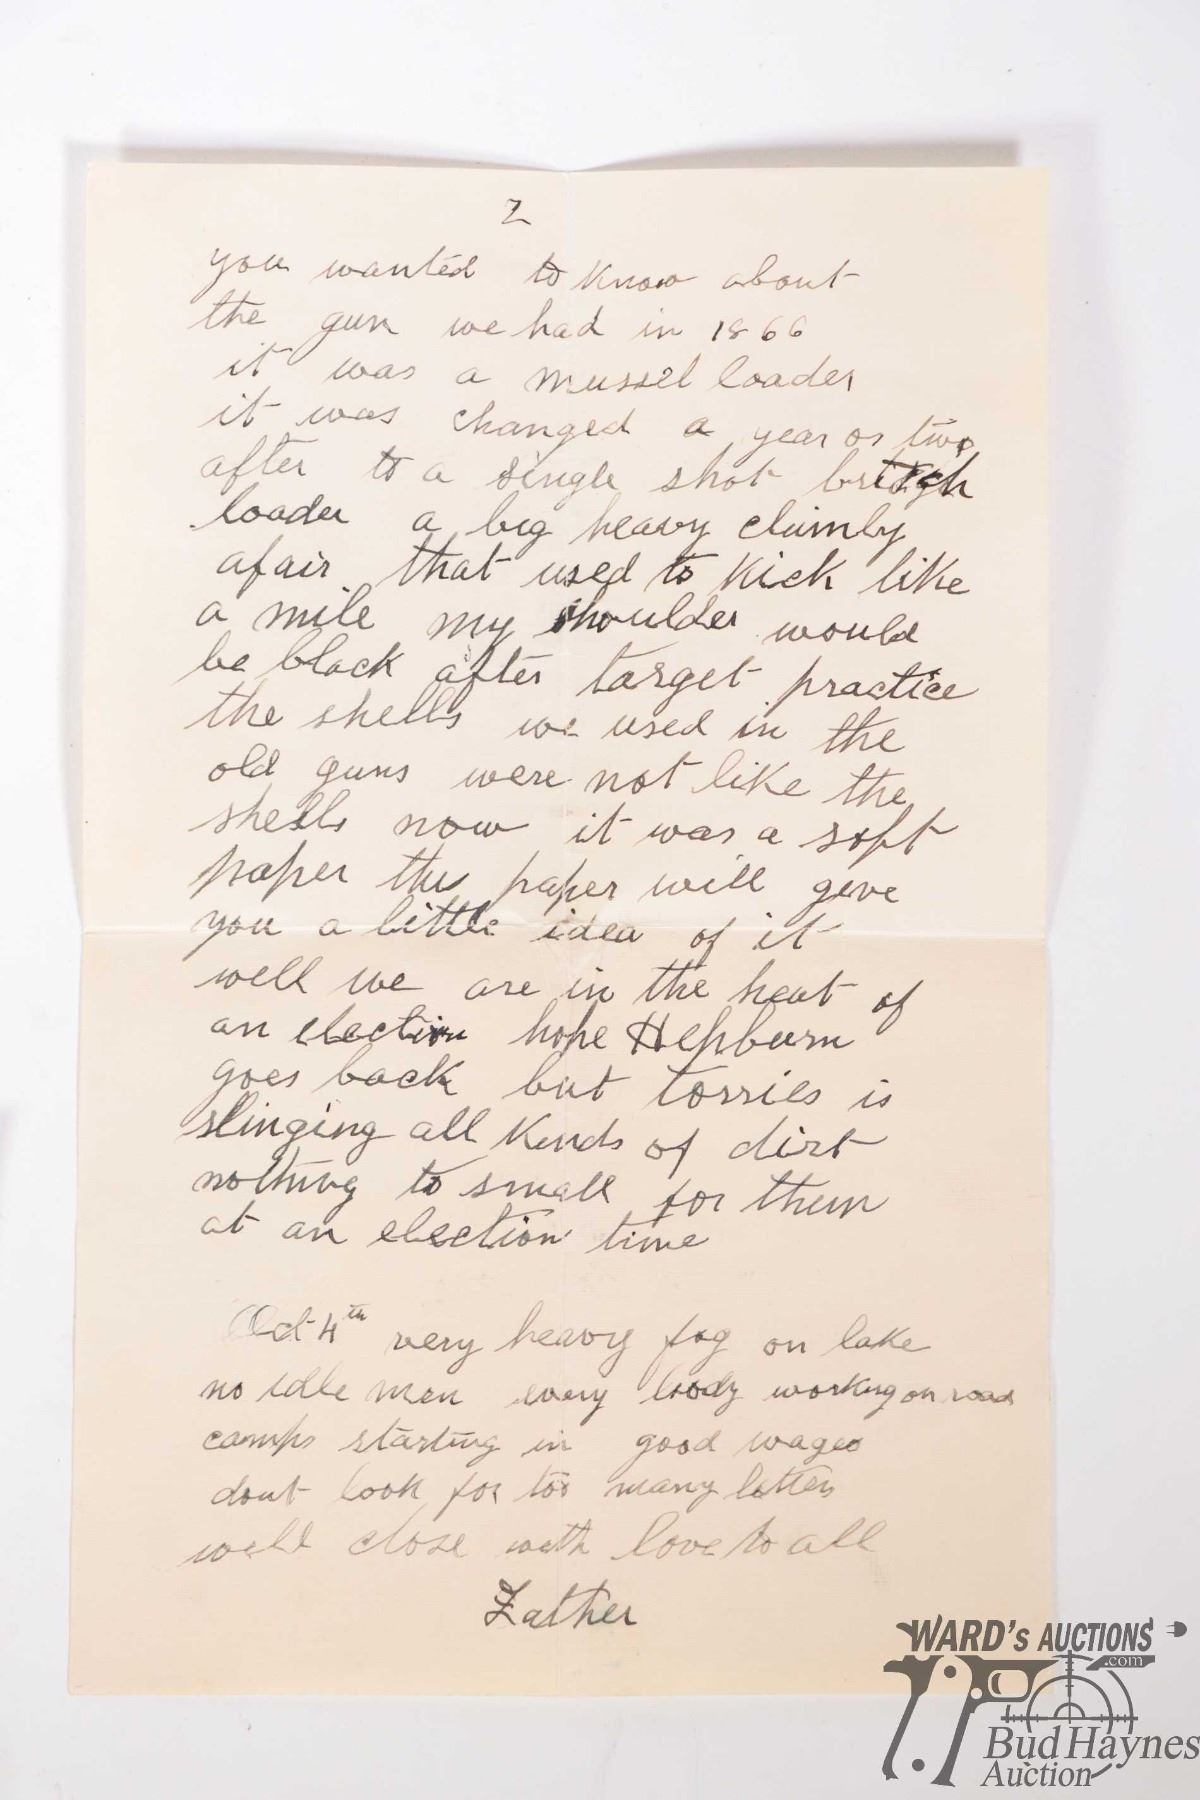 2
you wanted to know about
the gun we had in 1866
it was a mussel loader
it was changed a year or two
after to a single shot
loader a big heavy clumly
afair that used to kick like
a mile my shoulder would
be black after target practice
the shells we used in the
old guns were not like the
shells now it was a soft
paper this paper will give
you a little idea of it
well we are in the heat of
an election hope Hepburn
goes back but torries is
slinging all kinds of dirt
nothing to small for them
at an election time
Oct 4th very heavy fog on lake
no idle men every body working on road
camps starting in good wages
dont look for too many letters
well close with love to all
Father
WARD's AUCTIONS
.com
Bud Haynes
Auction